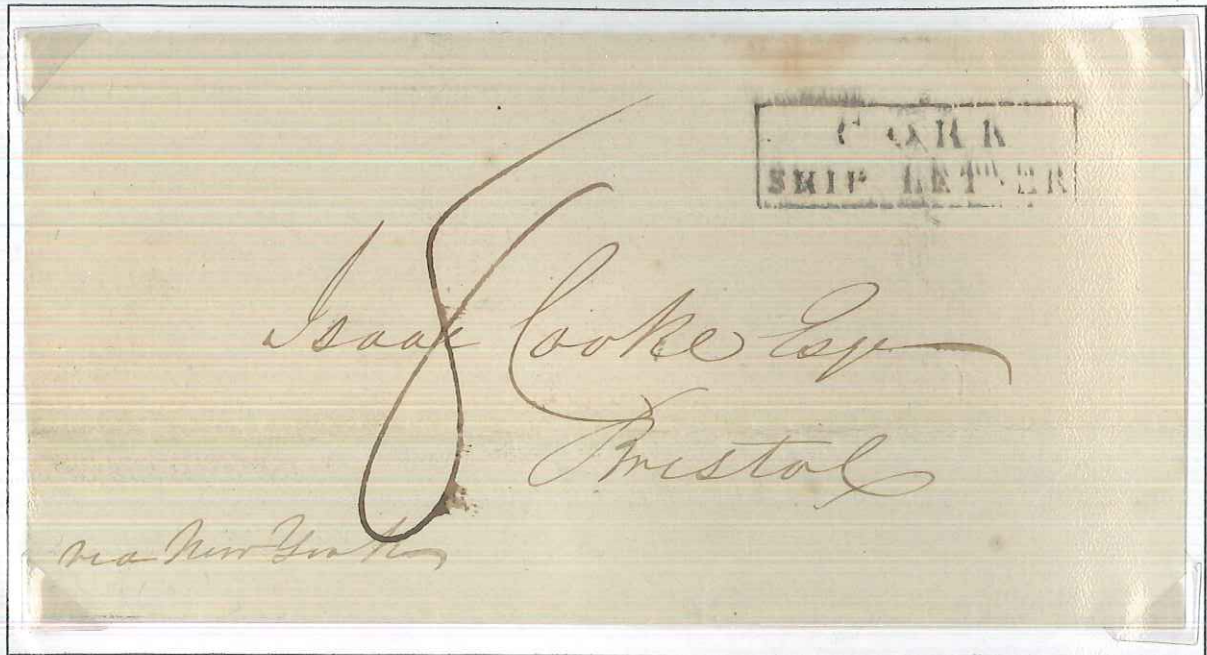 CORK
SHIP LETTER
8
Isaac Cooke Esqr
Bristol
via New York